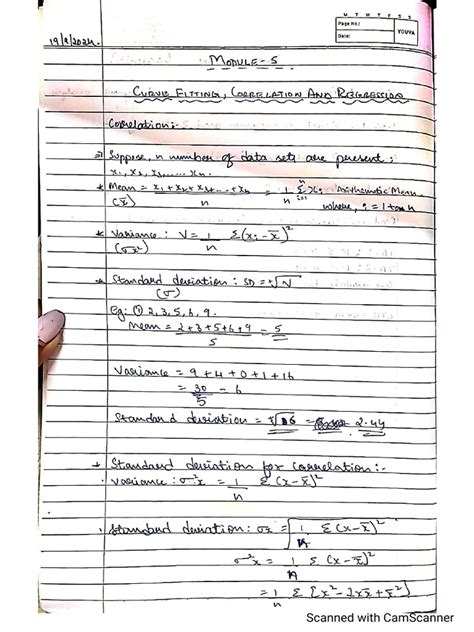 M T W T F S S
Page No.:
Date:
YOUVA
19/9/2024.
MODULE - 5
CURVE FITTING, CORRELATION AND REGRESSION
Correlation:-
⇒ Suppose, n number of data sets are present:
x₁, x₂, x₃, ..... xₙ.
* Mean = x₁ + x₂ + x₃... + xₙ / n = 1/n Σ xᵢ Arithmetic Mean
(x̄) where, i = 1 to n
* Variance: V = 1/n Σ(xᵢ - x̄)²
(σx²)
* Standard deviation: SD = +√V
(σ)
Eg: ① 2, 3, 5, 6, 9.
Mean = 2+3+5+6+9 / 5 = 5
Variance = 9 + 4 + 0 + 1 + 16
= 30/5 = 6
Standard deviation = +√6 = 2.44
* Standard deviation for correlation:-
Variance: σ²x = 1/n Σ (x - x̄)²
Standard deviation: σx = √ 1/n Σ (x - x̄)²
σ²x = 1/n Σ (x - x̄)²
= 1/n Σ [x² - 2xx̄ + x̄²]
Scanned with CamScanner